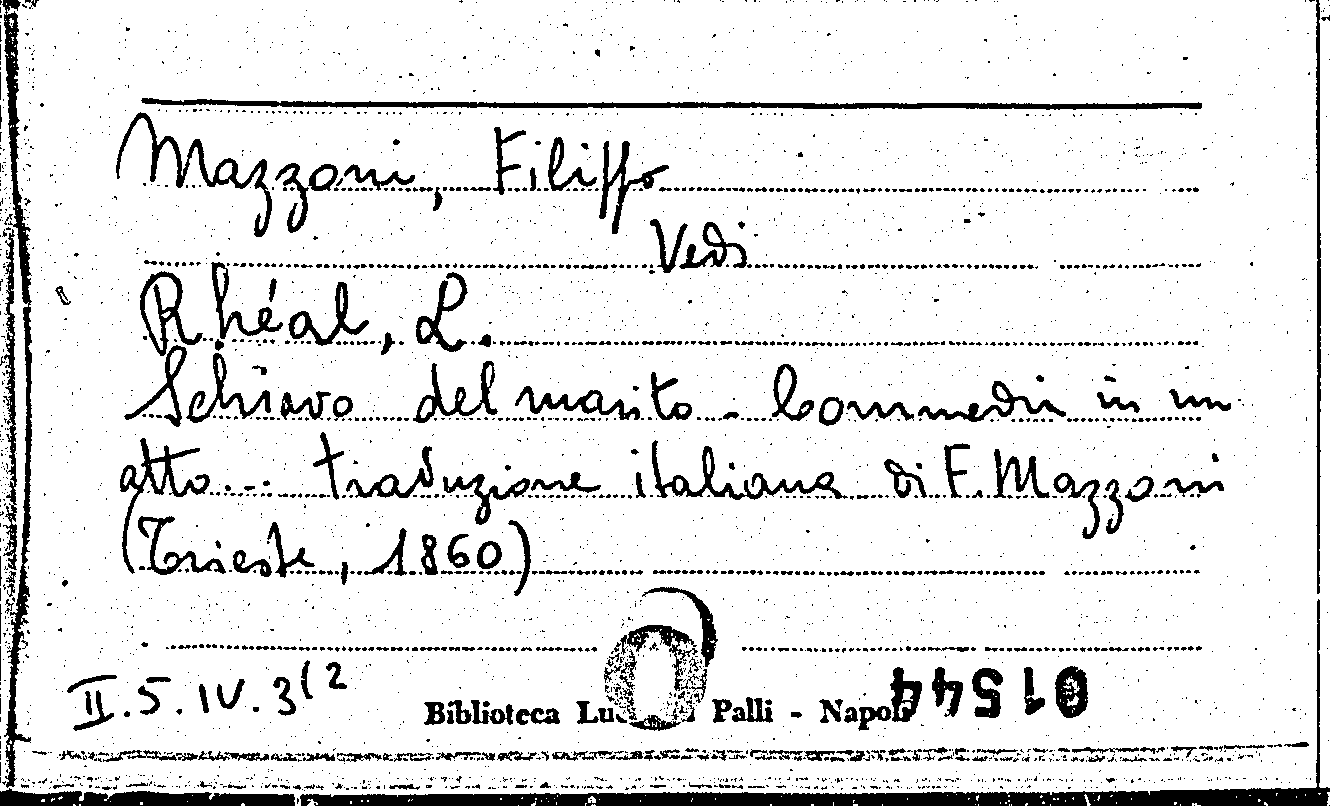 Mazzoni, Filippo
Vedi
Rhéal, L.
Schiavo del marito - Commedia in un
atto... traduzione italiana di F. Mazzoni
(Trieste, 1860)
II.5.IV.3(2
Biblioteca Palli - Napoli
01544